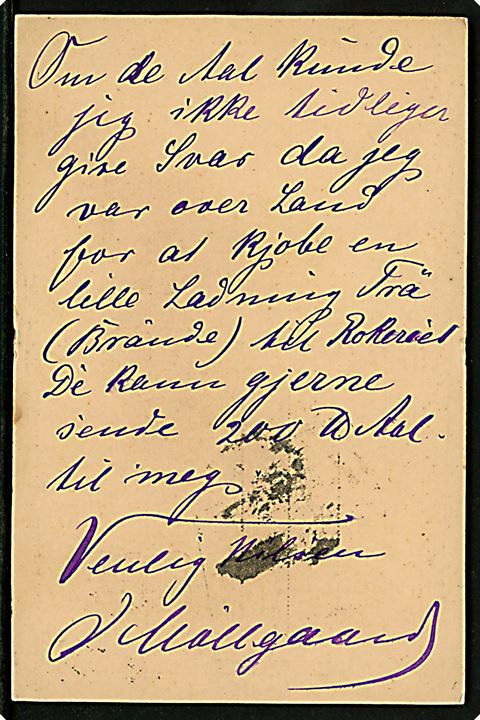 Om de Aal kunde
jeg ikke tidliger
give Svar da jeg
var over Land
for at kjøbe en
lille Ladning Trä
(Brände) til Rokeriet
De kann gjerne
sende 200 ℔ Aal.
til meg
Venlig Hilsen
J Möllgaard